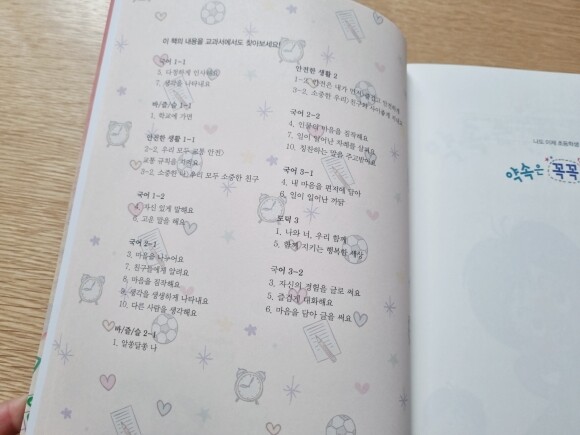 이 책의 내용을 교과서에서도 찾아보세요!
국어 1-1
5. 다정하게 인사해요
7. 생각을 나타내요
바/즐/슬 1-1
1. 학교에 가면
안전한 생활 1-1
2-2. 우리 모두 교통 안전
교통 규칙을 지켜요
3-2. 소중한 나, 우리 모두 소중한 친구
국어 1-2
4. 자신 있게 말해요
8. 고운 말을 해요
국어 2-1
3. 마음을 나누어요
7. 친구들에게 알려요
8. 마음을 짐작해요
9. 생각을 생생하게 나타내요
10. 다른 사람을 생각해요
바/즐/슬 2-1
1. 알쏭달쏭 나
안전한 생활 2
1-2. 안전은 내가 먼저
3-2. 소중한 우리
국어 2-2
4. 인물의 마음을 짐작해요
7. 일이 일어난 차례를 살펴요
10. 칭찬하는 말을 주고받아요
국어 3-1
4. 내 마음을 편지에 담아
6. 일이 일어난 까닭
도덕 3
1. 나와 너, 우리 함께
5. 함께 지키는 행복한 세상
국어 3-2
3. 자신의 경험을 글로 써요
5. 즐겁게 대화해요
6. 마음을 담아 글을 써요
나도 이제 초등학생
약속은 꼭꼭